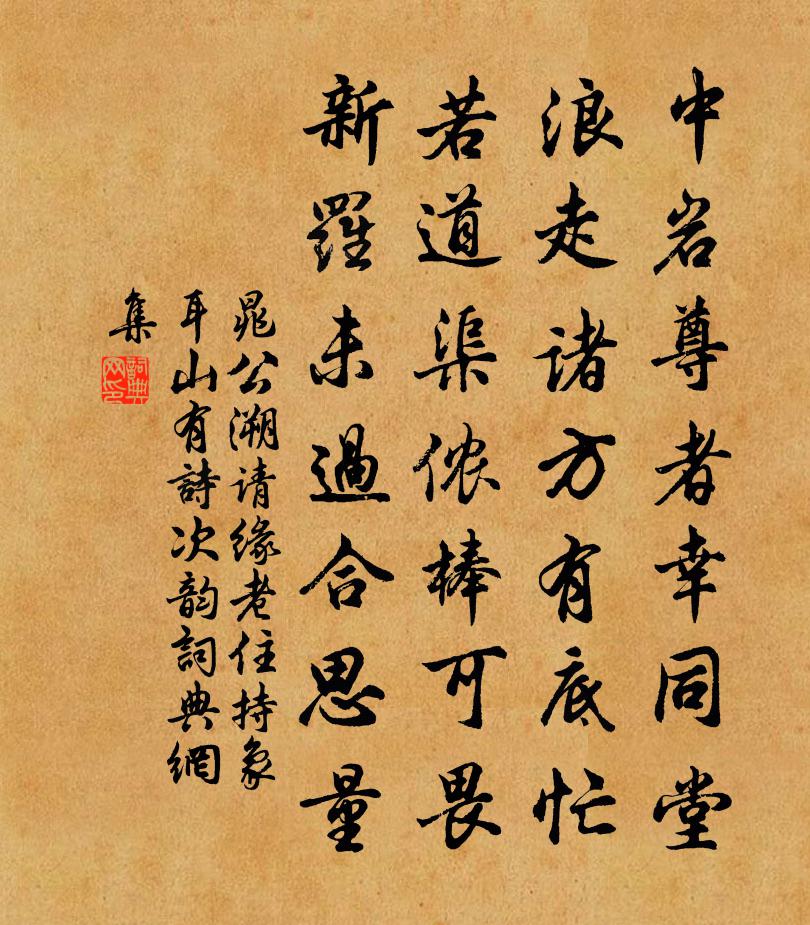 中岩尊者幸同堂
浪走诸方有底忙
若道渠侬棒可畏
新羅未過合思量
晁公溯请缘老住持象
耳山有詩次韵詞典網
集
詞典
网印